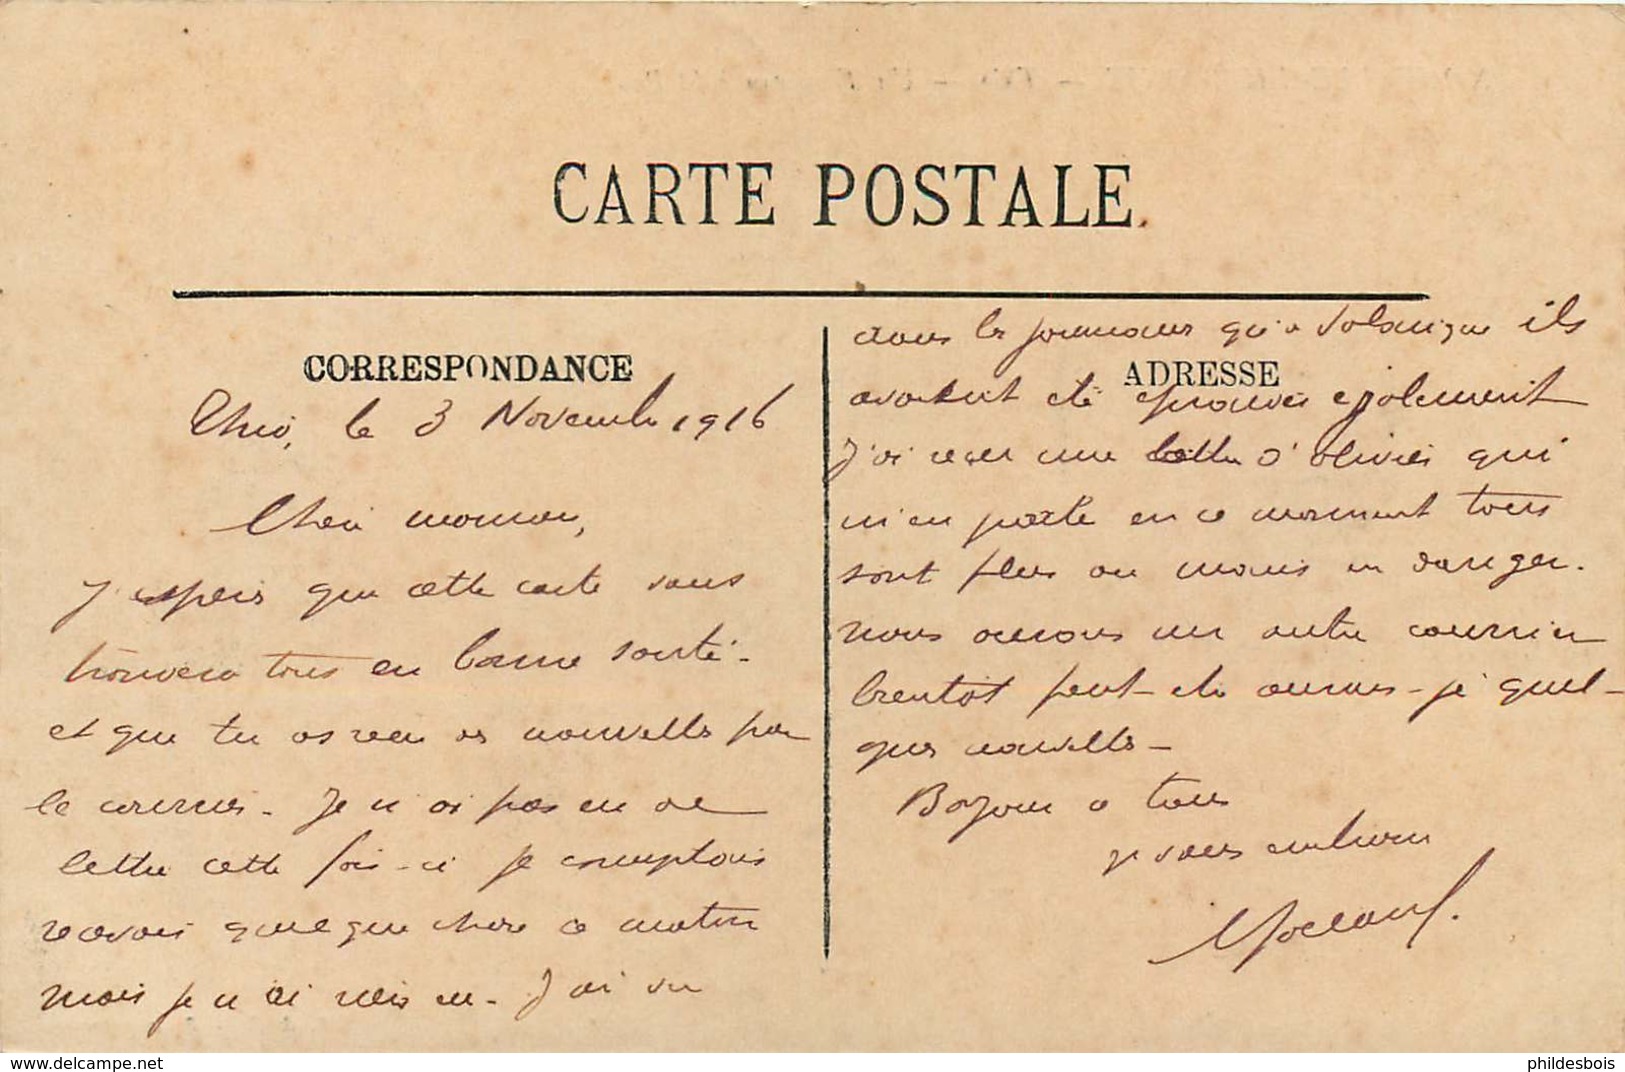 CARTE POSTALE
CORRESPONDANCE
Thio, le 3 Novembre 1916
Cheri maman,
J'espere que cette carte vous
trouvera tous en bonne santé -
et que tu as recu des nouvelles par
le courrier - Je n'ai pas eu de
lettre cette fois-ci je comptais
recevoir quelque chose ce matin
mais je n'ai rien eu - J'ai vu
ADRESSE
dans les journaux qu'a Salonique ils
avaient été eprouvés egalement
J'ai reçu une lettre d'Olivier qui
m'en parle en ce moment tous
sont plus ou moins en danger.
nous aurons un autre courrier
bientôt peut-etre aurais-je quel-
ques nouvelles -
Bonjour a tous
je vous embrasse
www.delcampe.net
phildesbois